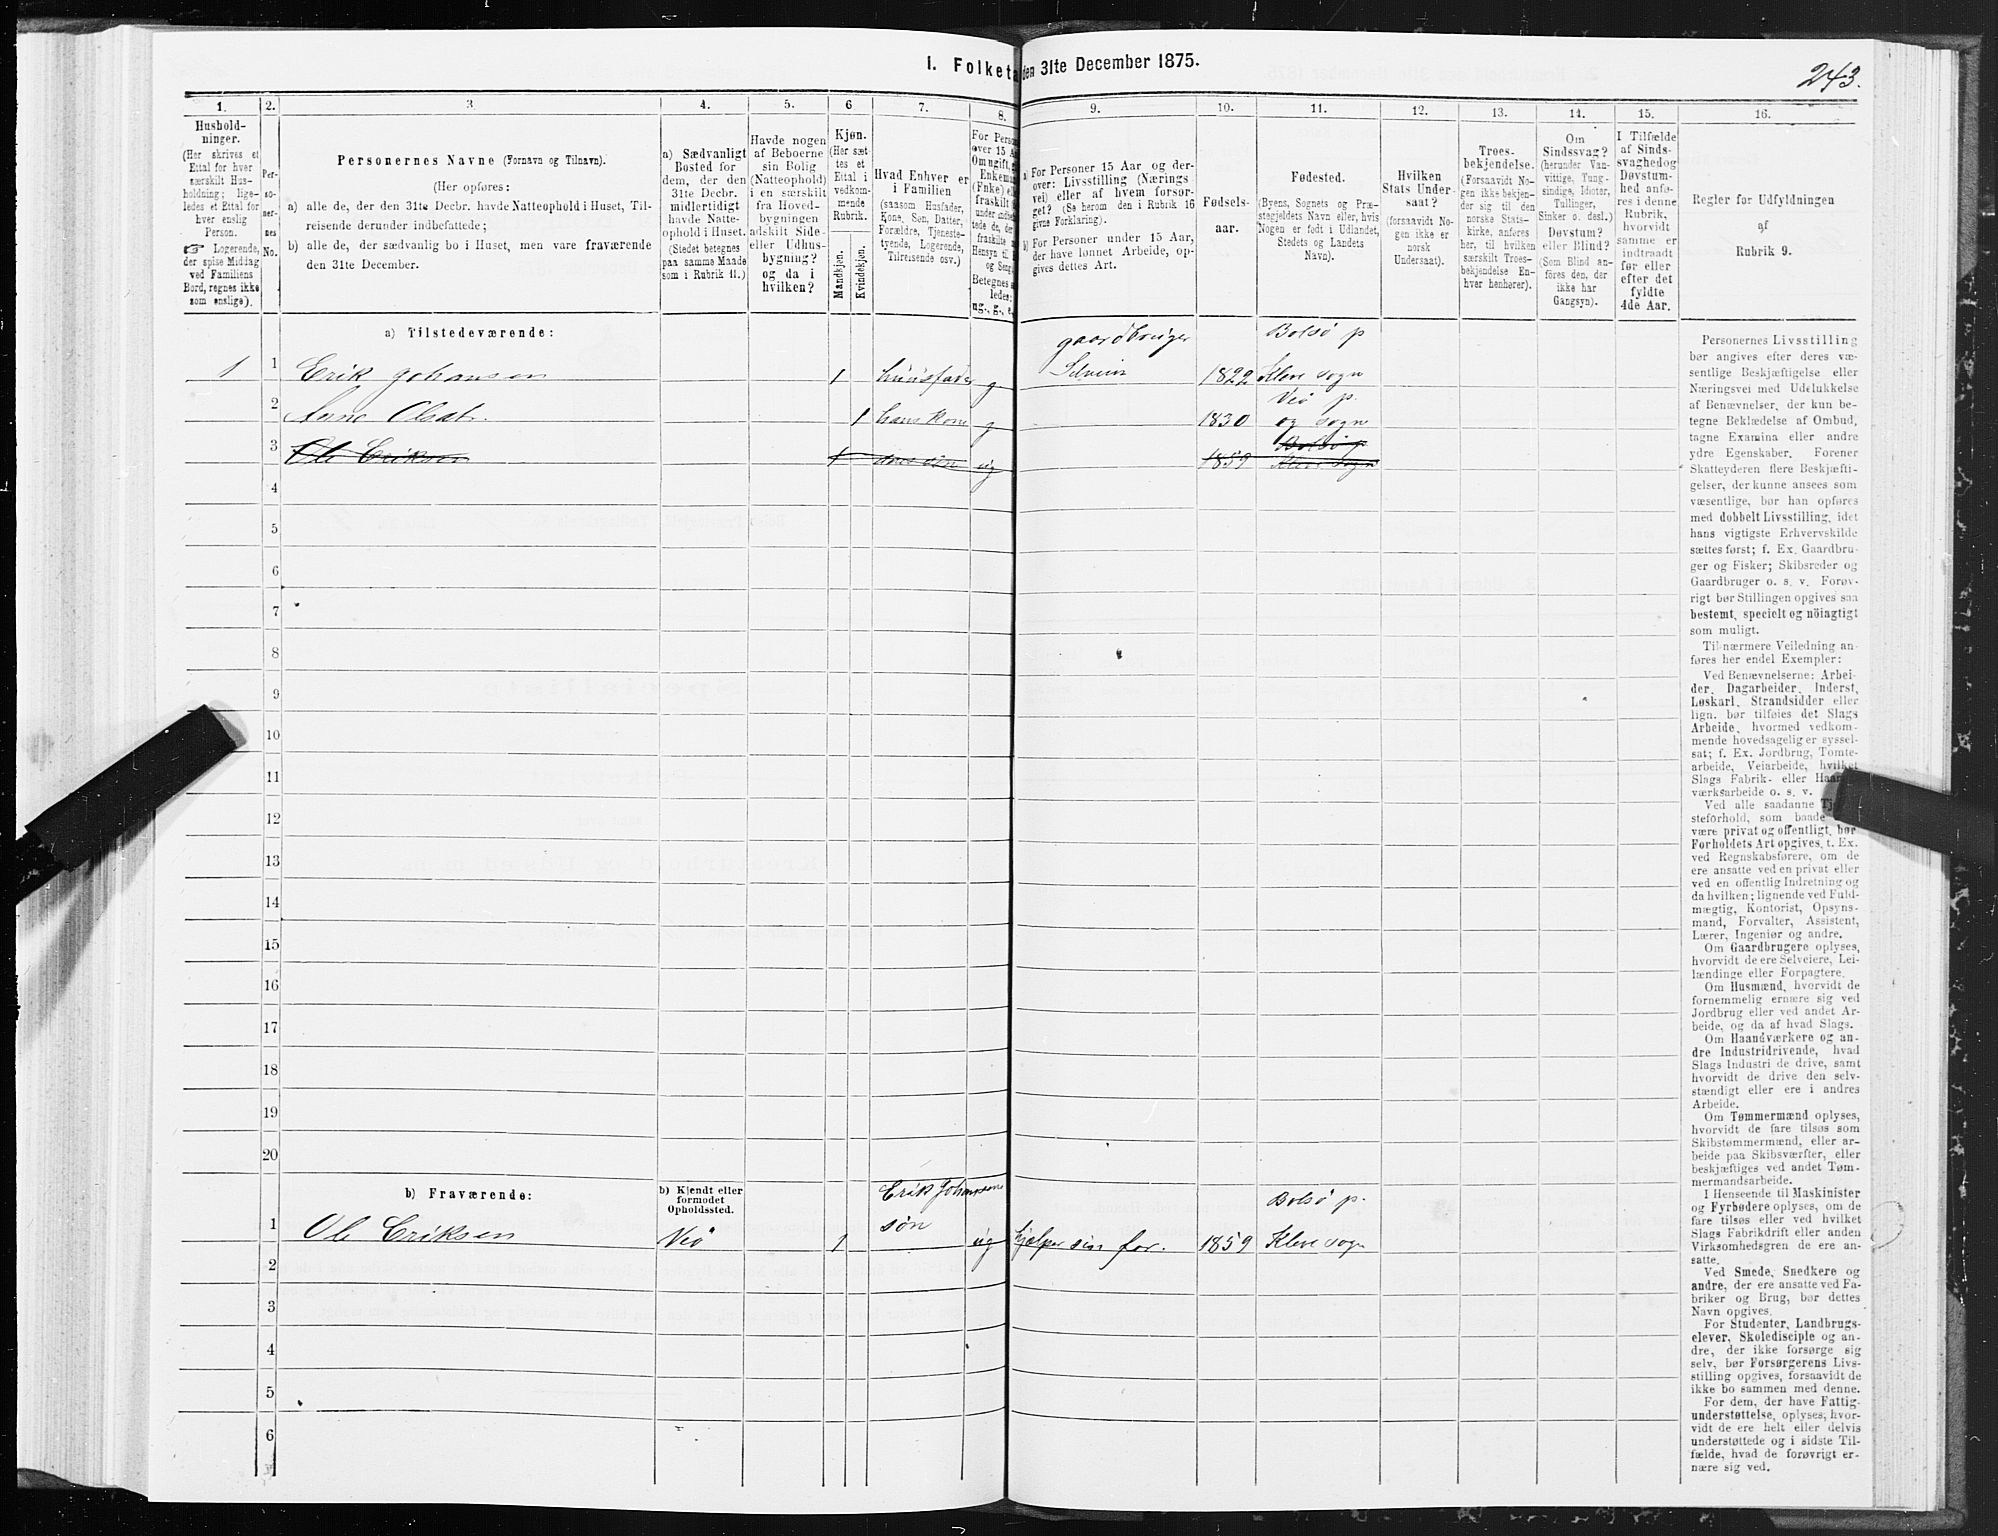 I. Folketa den 31te December 1875.
243.
1.
2.
3
4.
5.
6
7.
8.
9.
10.
11.
12.
13.
14.
15.
16.
Hushold-
ninger.
(Her skrives et
Ettal for hver
særskilt Hus-
holdning; lige-
ledes et Ettal for
hver enslig
Person.
☞ Logerende,
der spise Middag
ved Familiens
Bord, regnes ikke
som enslige).
Per-
so-
ner-
nes
No.
Personernes Navne (Fornavn og Tilnavn).
(Her opføres:
a) alle de, der den 31te Decbr. havde Natteophold i Huset, Til-
reisende derunder indbefattede;
b) alle de, der sædvanlig bo i Huset, men vare fraværende
den 31te December.
a) Sædvanligt
Bosted for
dem, der den
31te Decbr.
midlertidigt
havde Natte-
ophold i Huset.
(Stedet betegnes
paa samme Maade
som i Rubrik 11.)
Havde nogen
af Beboerne
sin Bolig
(Natteophold)
i en særskilt
fra Hoved-
bygningen
adskilt Side-
eller Udhus-
bygning?
og da i
hvilken?
Kjøn.
(Her sæt-
tes et
Ettal i
vedkom-
mende
Rubrik.
Mandkjøn.
Kvindekjøn.
Hvad Enhver er
i Familien
(saasom Husfader,
Kone, Søn, Datter,
Forældre, Tjeneste-
tyende, Logerende,
Tilreisende osv.)
For Person
over 15 A
Om ugift, g
Enkema
(Fnke) el
fraskilt
under indb
tede de, de
fraskilte
Hensyn til
og Seng
Betegnes s
ledes:
ug., g., e.
a) For Personer 15 Aar og der-
over: Livsstilling (Nærings
vei) eller af hvem forsør-
get? (Se herom den i Rubrik 16
givne Forklaring).
b) For Personer under 15 Aar,
der have lønnet Arbeide, op-
gives dettes Art.
Fødsels-
aar.
Fødested.
(Byens, Sognets og Præ-
stegjeldets Navn eller, hvis
Nogen er født i Udlandet,
Stedets og Landets
Navn).
Hvilken
Stats Under-
saat?
(forsaavidt No-
gen ikke er
norsk
Undersaat).
Troes-
bekjendelse.
(Forsaavidt No-
gen ikke bekjen-
der sig til den
norske Stats-
kirke, anføres
her, til hvilken
særskilt Troes-
bekjendelse En-
hver henhører).
Om
Sindssvag?
(herunder Van-
vittige, Tung-
sindige, Idioter,
Tullinger,
Sinker o. desl.)
Døvstum?
eller Blind?
(Som Blind an-
føres den, der
ikke har
Gangsyn).
I Tilfælde
af Sinds-
svaghed og
Døvstum-
hed anfø-
res i denne
Rubrik,
hvorvidt
samme er
indtraadt
før eller
efter det
fyldte
4de Aar.
Regler for Udfyldningen
af
Rubrik 9.
a) Tilstedeværende:
gaardbruger Bolsø p
1 1 Erik Johansen 1 huusfader g Selveier 1822 Kleve sogn
Veø p.
2 Anne Olsdtr. 1 hans kone g 1830 og sogn
Bolsø p
3 Ole Eriksen 1 søn ug 1859 Kleve sogn
4
5
6
7
8
9
10
11
12
13
14
15
16
17
18
19
20
b) Fraværende:
b) Kjendt eller
formodet
Opholdssted.
Erik Johansens Bolsø p.
1 Ole Eriksen Veø 1 søn ug hjælper sin far. 1859 Kleve sogn
2
3
4
5
6
Personernes Livsstilling
bør angives efter deres væ-
sentlige Beskjæftigelse eller
Næringsvei med Udelukkelse
af Benævnelser, der kun be-
tegne Beklædelse af Ombud,
tagne Examina eller andre
ydre Egenskaber. Forener
Skatteyderen flere Beskjæfti-
gelser, der kunne ansees som
væsentlige, bør han opføres
med dobbelt Livsstilling, idet
hans vigtigste Erhvervskilde
sættes først; f. Ex. Gaardbru-
ger og Fisker; Skibsreder og
Gaardbruger o. s. v. Forøv-
rigt bør Stillingen opgives saa
bestemt, specielt og nöiagtigt
som muligt.
Til nærmere Veiledning an-
føres her endel Exempler:
Ved Benævnelserne: Arbei-
der, Dagarbeider, Inderst,
Løskarl, Strandsidder eller
lign. bør tilføies det Slags
Arbeide, hvormed vedkom-
mende hovedsagelig er syssel-
sat; f. Ex. Jordbrug, Tomte-
arbeide, Veiarbeide, hvilket
Slags Fabrik- eller Haand-
værksarbeide o. s. v.
Ved alle saadanne Tje
steforhold, som baade
være privat og offentligt, bør
Forholdets Art opgives, t. Ex.
ved Regnskabsførere, om de
ere ansatte ved en privat eller
ved en offentlig Indretning og
da hvilken; lignende ved Fuld-
mægtig, Kontorist, Opsyns-
mand, Forvalter, Assistent,
Lærer, Ingeniør og andre.
Om Gaardbrugere oplyses,
hvorvidt de ere Selveiere, Lei-
lændinge eller Forpagtere.
Om Husmænd, hvorvidt de
fornemmelig ernære sig ved
Jordbrug eller ved andet Ar-
beide, og da af hvad Slags.
Om Haandværkere og an-
dre Industridrivende, hvad
Slags Industri de drive, samt
hvorvidt de drive den selv-
stændigt eller ere i andres
Arbeide.
Om Tømmermænd oplyses,
hvorvidt de fare tilsøs som
Skibstømmermænd, eller ar-
beide paa Skibsværfter, eller
beskjæftiges ved andet Tøm-
mermandsarbeide.
I Henseende til Maskinister
og Fyrbødere oplyses, om de
fare tilsøs eller ved hvilket
Slags Fabrikdrift eller anden
Virksomhedsgren de ere an-
satte.
Ved Smede, Snedkere og
andre, der ere ansatte ved Fa-
briker og Brug, bør dettes
Navn opgives.
For Studenter, Landbrugs-
elever, Skoledisciple og an-
dre, der ikke forsørge sig
selv, bør Forsørgerens Livs-
stilling opgives, forsaavidt de
ikke bo sammen med denne.
For dem, der have Fattig-
understøttelse, oplyses, hvor-
vidt de ere helt eller delvis
understøttede og i sidste Til-
fælde, hvad de forøvrigt er-
nære sig ved.